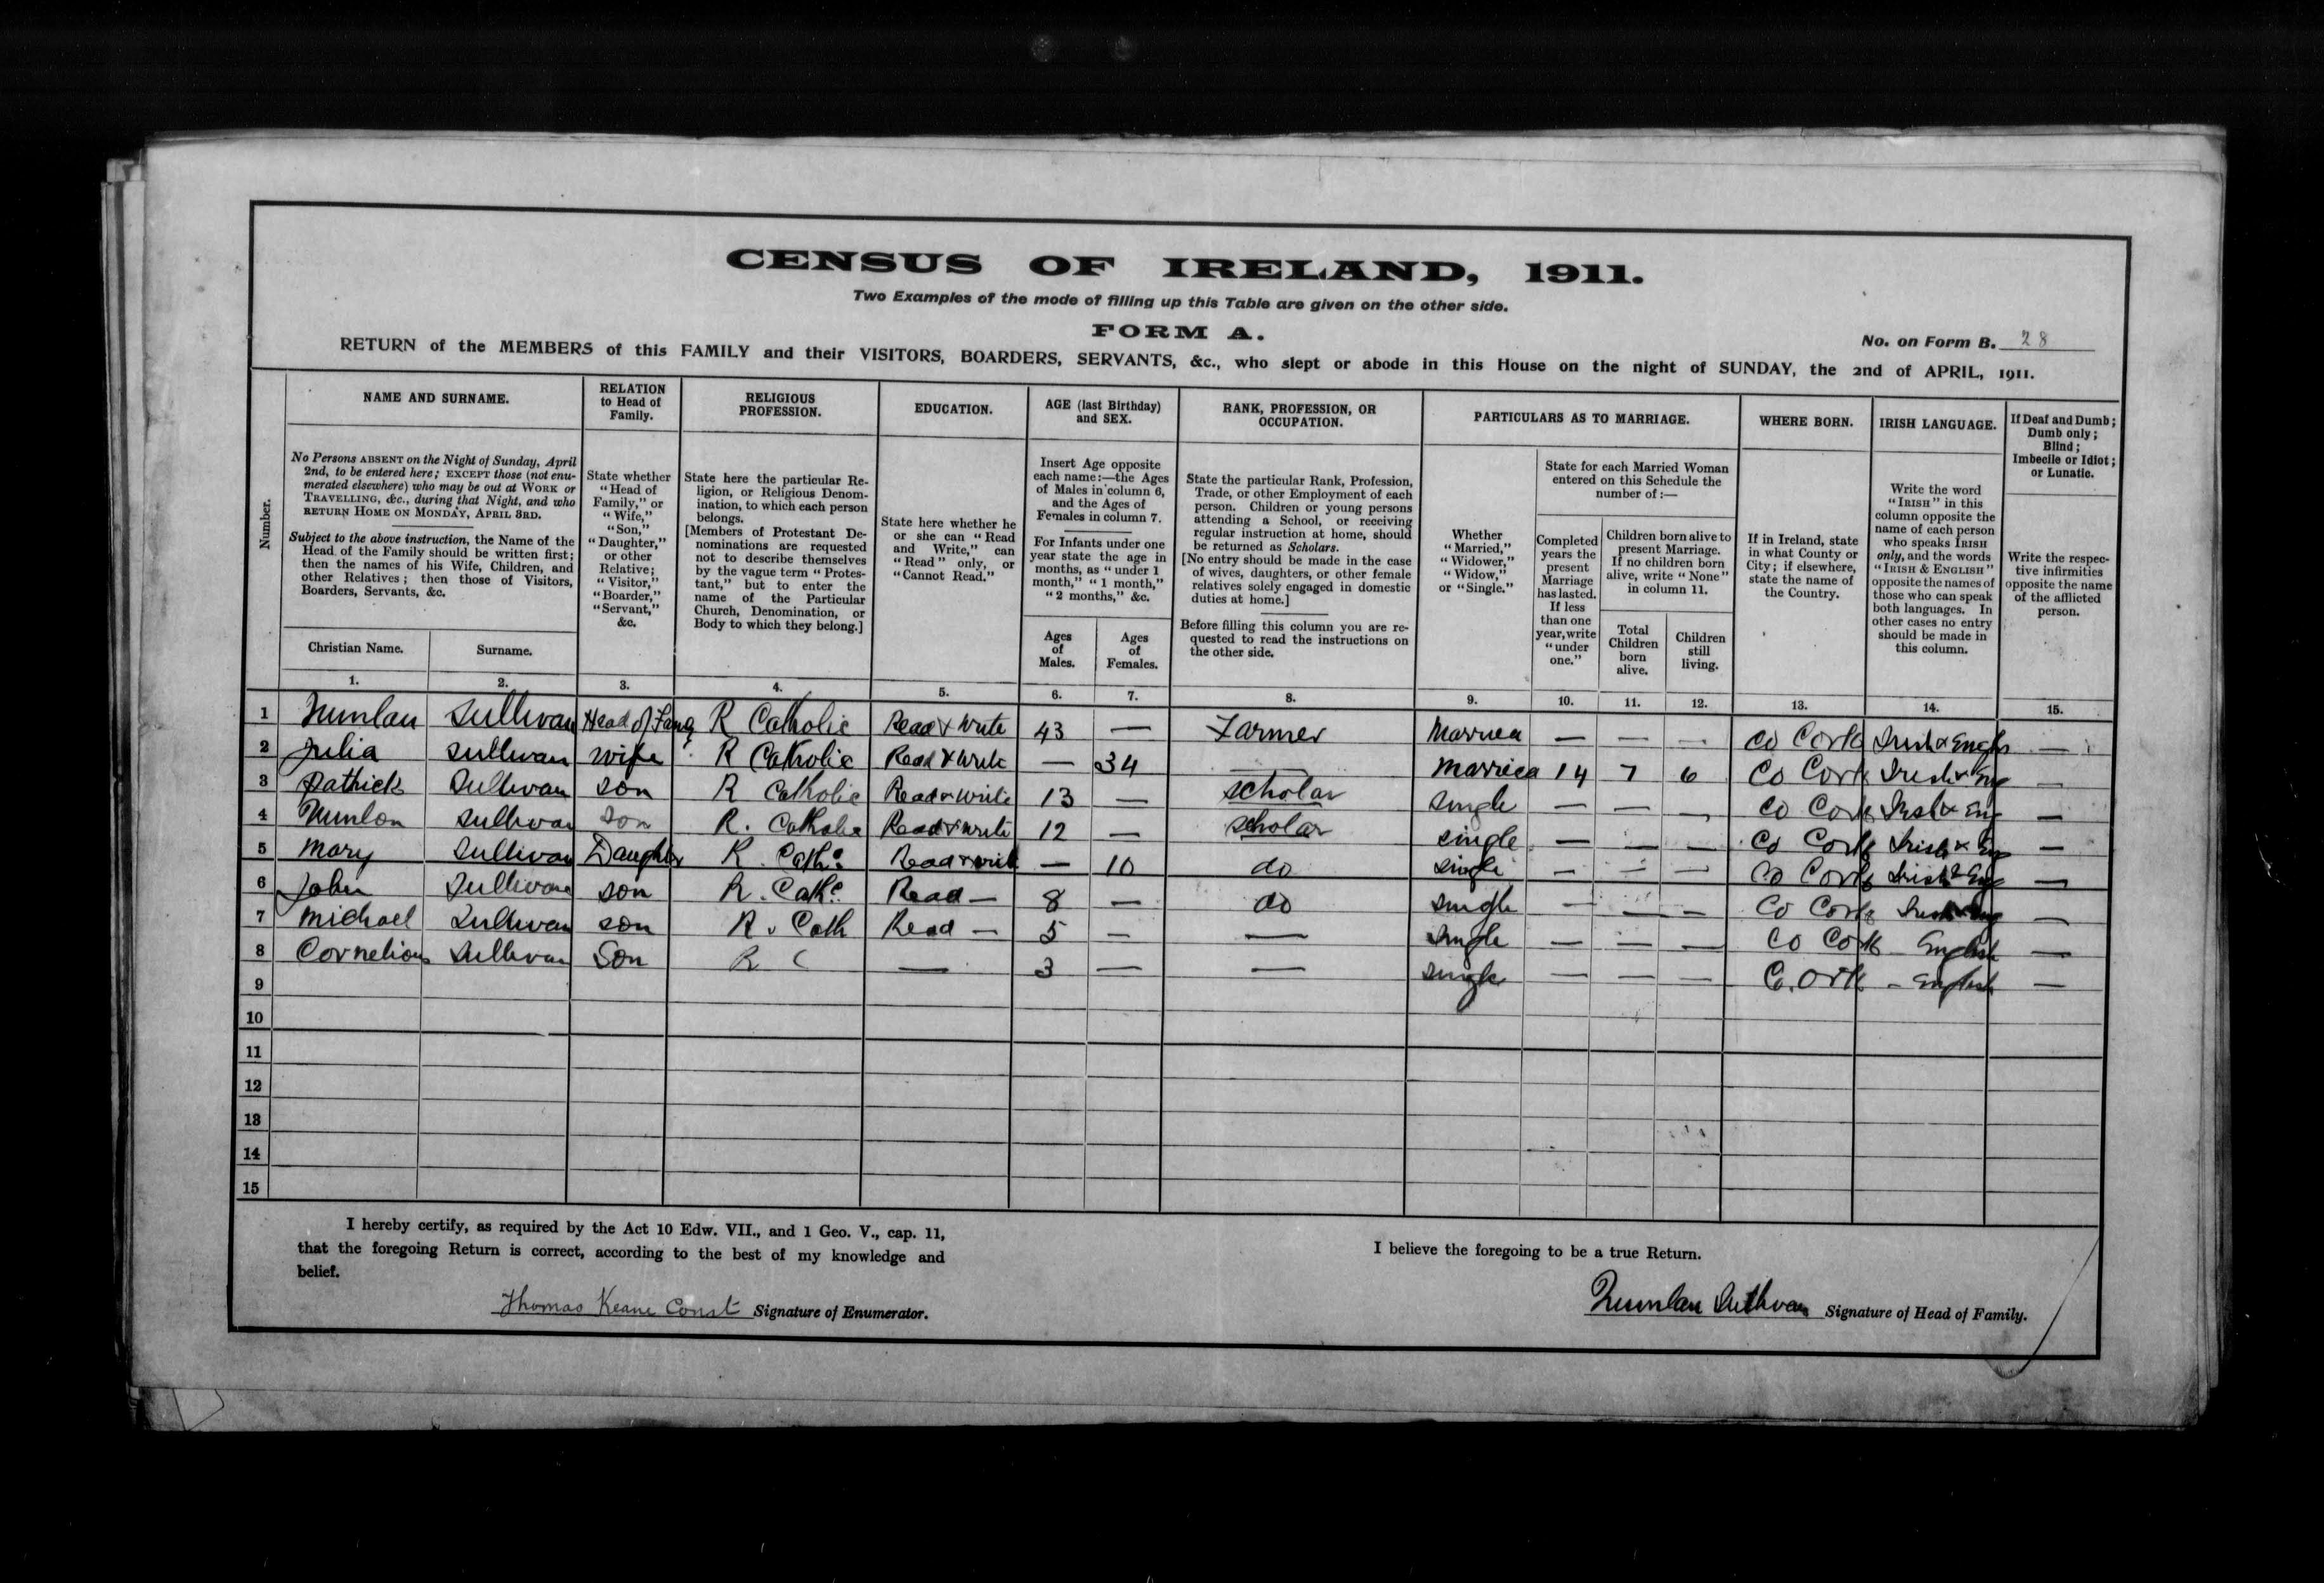 CENSUS OF IRELAND, 1911.
Two Examples of the mode of filling up this Table are given on the other side.
FORM A.
No. on Form B. 28
RETURN of the MEMBERS of this FAMILY and their VISITORS, BOARDERS, SERVANTS, &c., who slept or abode in this House on the night of SUNDAY, the 2nd of APRIL, 1911.
Number.
NAME AND SURNAME.
No Persons ABSENT on the Night of Sunday, April
2nd, to be entered here; EXCEPT those (not enu-
merated elsewhere) who may be out at WORK or
TRAVELLING, &c., during that Night, and who
RETURN HOME ON MONDAY, APRIL 3RD.
Subject to the above instruction, the Name of the
Head of the Family should be written first;
then the names of his Wife, Children, and
other Relatives; then those of Visitors,
Boarders, Servants, &c.
Christian Name.
Surname.
1.
2.
RELATION
to Head of
Family.
State whether
"Head of
Family," or
"Wife,"
"Son,"
"Daughter,"
or other
Relative;
"Visitor,"
"Boarder,"
"Servant,"
&c.
3.
RELIGIOUS
PROFESSION.
State here the particular Re-
ligion, or Religious Denom-
ination, to which each person
belongs.
[Members of Protestant De-
nominations are requested
not to describe themselves
by the vague term "Protes-
tant," but to enter the
name of the Particular
Church, Denomination, or
Body to which they belong.]
4.
EDUCATION.
State here whether he
or she can "Read
and Write," can
"Read" only, or
"Cannot Read."
5.
AGE (last Birthday)
and SEX.
Insert Age opposite
each name:—the Ages
of Males in column 6,
and the Ages of
Females in column 7.
For Infants under one
year state the age in
months, as "under 1
month," "1 month,"
"2 months," &c.
Ages
of
Males.
Ages
of
Females.
6.
7.
RANK, PROFESSION, OR
OCCUPATION.
State the particular Rank, Profession,
Trade, or other Employment of each
person. Children or young persons
attending a School, or receiving
regular instruction at home, should
be returned as Scholars.
[No entry should be made in the case
of wives, daughters, or other female
relatives solely engaged in domestic
duties at home.]
Before filling this column you are re-
quested to read the instructions on
the other side.
8.
PARTICULARS AS TO MARRIAGE.
Whether
"Married,"
"Widower,"
"Widow,"
or "Single."
9.
State for each Married Woman
entered on this Schedule the
number of:—
Completed
years the
present
Marriage
has lasted.
If less
than one
year, write
"under
one."
10.
Children born alive to
present Marriage.
If no children born
alive, write "None"
in column 11.
Total
Children
born
alive.
Children
still
living.
11.
12.
WHERE BORN.
If in Ireland, state
in what County or
City; if elsewhere,
state the name of
the Country.
13.
IRISH LANGUAGE.
Write the word
"IRISH" in this
column opposite the
name of each person
who speaks IRISH
only, and the words
"IRISH & ENGLISH"
opposite the names of
those who can speak
both languages. In
other cases no entry
should be made in
this column.
14.
If Deaf and Dumb;
Dumb only;
Blind;
Imbecile or Idiot;
or Lunatic.
Write the respec-
tive infirmities
opposite the name
of the afflicted
person.
15.
1 Sullivan Head of R Catholic Read & Write 43 — Farmer Married — — — Co Cork Irish & —
2 Julia Sullivan wife R Catholic Read & Write — 34 — Married 14 7 6 Co Cork Irish & Eng —
3 Patrick Sullivan son R Catholic Read & Write 13 — scholar single — — — Co Cork Irish & Eng —
4 Sullivan son R. Catholic Read & write 12 — scholar single — — — Co Cork Irish & Eng —
5 Mary Sullivan Daughter R. Cath Read & write — 10 do single — — — Co Cork Irish & Eng —
6 John Sullivan son R. Cath Read — 8 — do single — — — Co Cork Irish & Eng —
7 Michael Sullivan son R. Cath Read — 5 — — single — — — Co Cork English —
8 Cornelious Sullivan Son R C — 3 — — single — — — Cork - English —
9
10
11
12
13
14
15
I hereby certify, as required by the Act 10 Edw. VII., and 1 Geo. V., cap. 11,
that the foregoing Return is correct, according to the best of my knowledge and
belief.
Thomas Keane Const Signature of Enumerator.
I believe the foregoing to be a true Return.
Sullivan Signature of Head of Family.